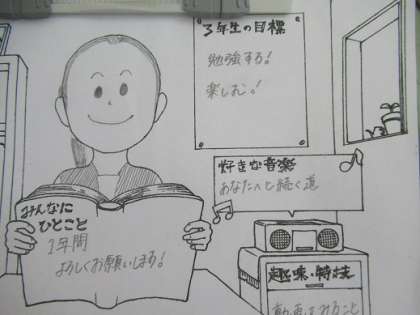 3年生の目標
勉強する!
楽しむ!
好きな音楽
あなたへと続く道
みんなに
ひとこと
1年間
よろしくお願いします!
趣味・特技